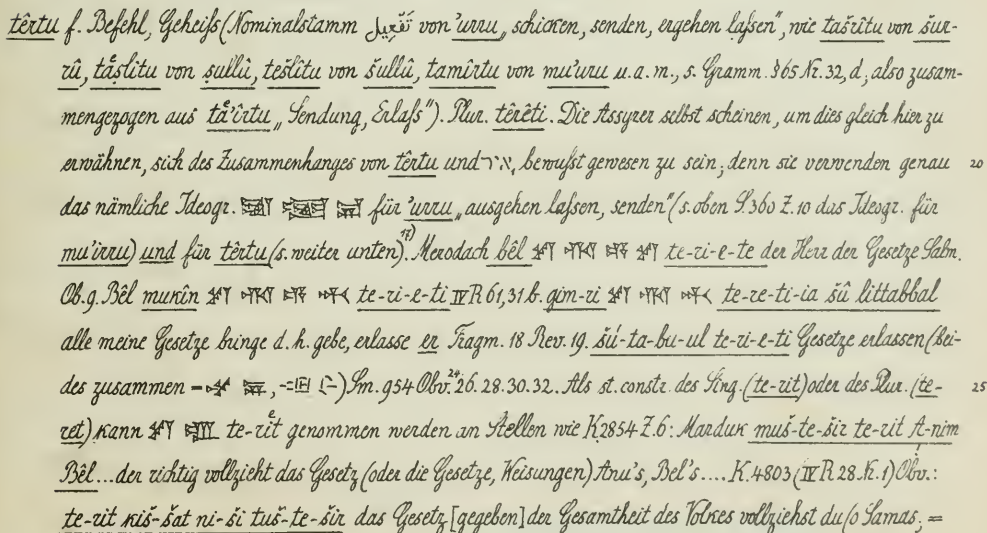 têrtu f. Befehl, Geheiſs (Nominalstamm تَفْعِيل von 'urru „schicken, senden, ergehen laſsen“, wie tašrîtu von šur-
rû, taṣlîtu von ṣullû, tešlîtu von šullû, tamîrtu von mu'uru u. a. m., s. Gramm. §65 Nr. 32, d; also zusam-
mengezogen aus ta'irtu „Sendung, Erlaſs“). Plur. têrêti. Die Assyrer selbst scheinen, um dies gleich hier zu
erwähnen, sich des Zusammenhanges von têrtu und אר, bewuſst gewesen zu sein; denn sie verwenden genau 20
das nämliche Ideogr. für 'urru „ausgehen laſsen, senden“ (s. oben S. 360 Z. 10 das Ideogr. für
mu'irru) und für têrtu (s. weiter unten). Merodach bêl te-ri-e-te der Herr der Gesetze Salm.
Ob. 9. Bêl mukîn te-ri-e-ti IV R 61, 31 b. gim-ri te-re-ti-ia šû littabbal
alle meine Gesetze bringe d. h. gebe, erlasse er Fragm. 18 Rev. 19. šú-ta-bu-ul te-ri-e-ti Gesetze erlassen (bei-
des zusammen =) Sm. 954 Obv. 26. 28. 30. 32. Als st. constr. des Sing. (te-rit) oder des Plur. (te- 25
ret) kann te-rit genommen werden an Stellen wie K 2854 Z. 6: Marduk muš-te-šir te-rit A-nim
Bêl ... der richtig vollzieht das Gesetz (oder die Gesetze, Weisungen) Anu's, Bel's .... K. 4803 (IV R 28. Nr. 1) Obv.:
te-rit kiš-šat ni-ši tuš-te-šir das Gesetz [gegeben] der Gesamtheit des Volkes vollziehst du (o Samas; =